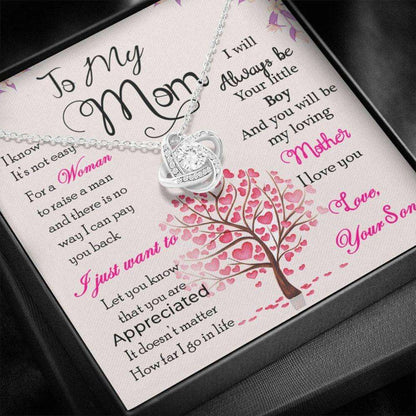 To My
Mom
I know
It's not easy
For a Woman
to raise a man
and there is no
way I can pay
you back
I just want to
Let you know
that you are
Appreciated
It doesn't matter
How far I go in life
I will
Always be
Your little
Boy
And you will be
my loving
Mother
I love you
Love,
Your Son